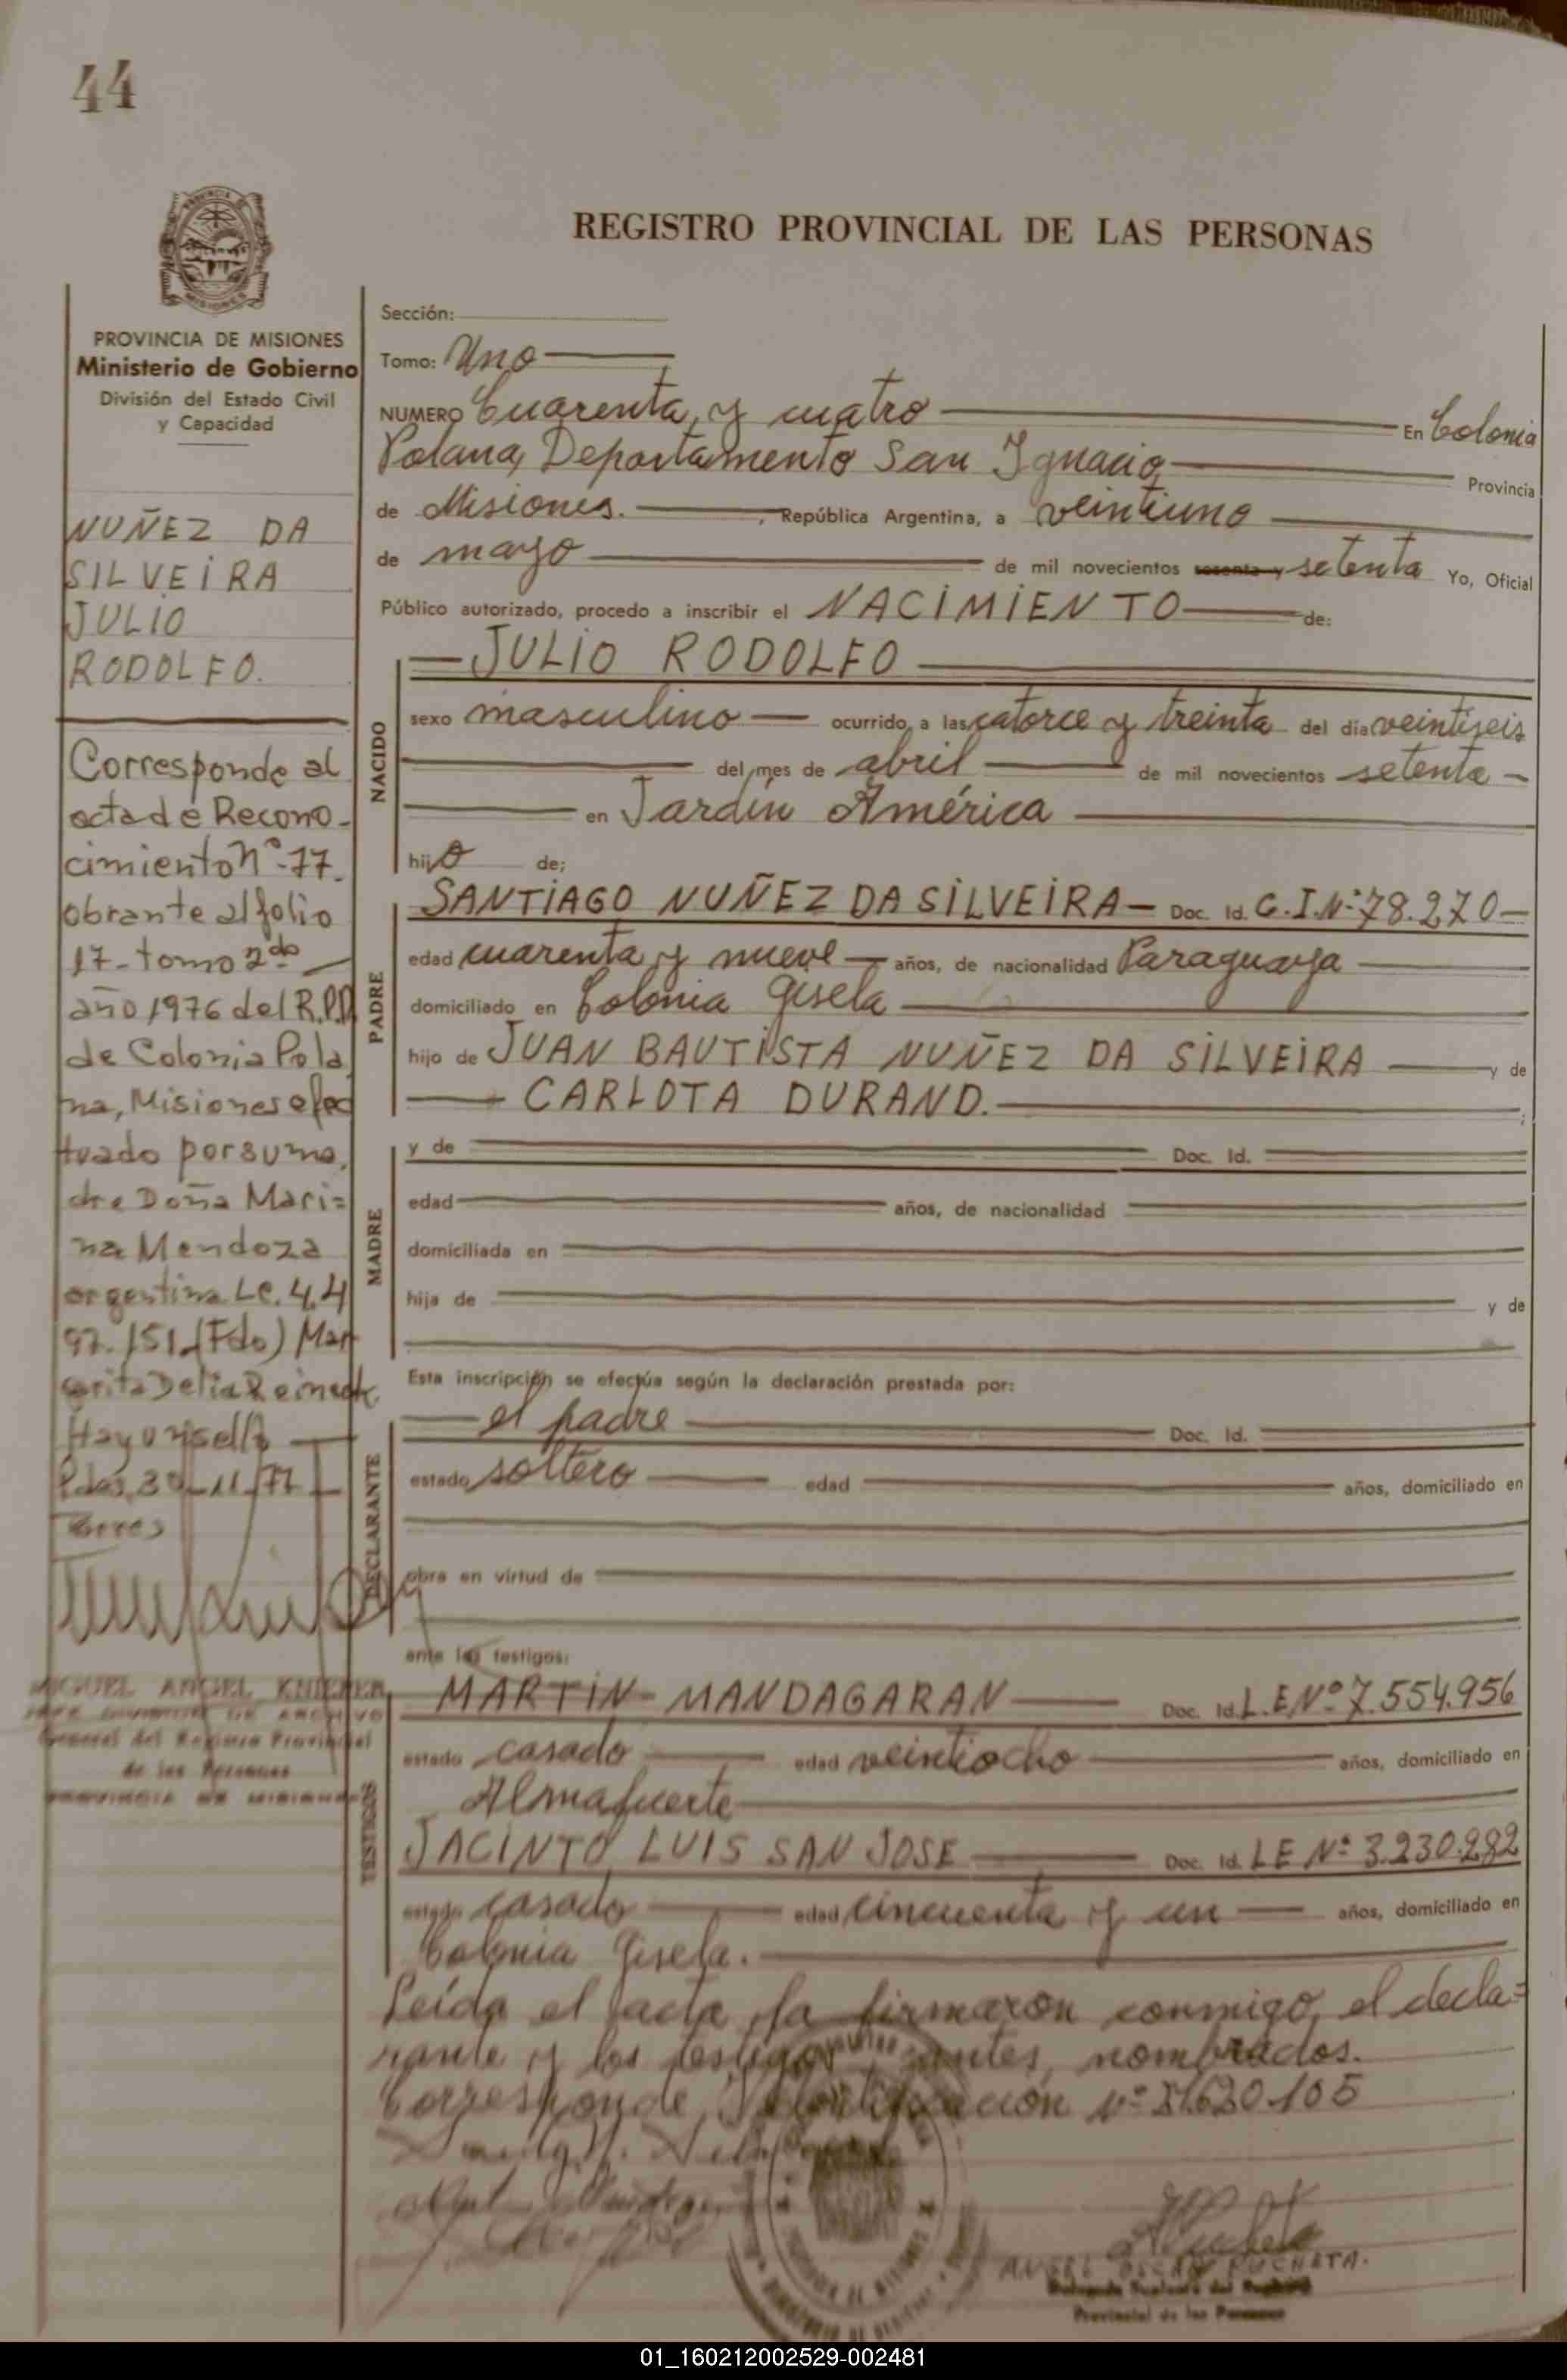 44
REGISTRO PROVINCIAL DE LAS PERSONAS
PROVINCIA DE MISIONES
Ministerio de Gobierno
División del Estado Civil
y Capacidad
NUÑEZ DA
SILVEIRA
JULIO
RODOLFO.
Corresponde al
acta de Recono-
cimiento Nº-77.
obrante al folio
17- tomo 2do
año 1976 del R.P.P.
de Colonia Pola
na, Misiones efec
tuado por su ma
dre Doña Mari=
na Mendoza
argentina LC. 4.4
97.151.(Fdo) Mar
garita Delia
Hay un sello
Pdas, 30-11-77
Torres
MIGUEL ANGEL KNIEPER
JEFE DIVISION DE ARCHIVO
General del Registro Provincial
de las Personas
PROVINCIA DE MISIONES
Sección:
Tomo: Uno
NUMERO Cuarenta y cuatro En Colonia
Polana, Departamento San Ignacio, Provincia
de Misiones. , República Argentina, a veintiuno
de mayo de mil novecientos sesenta y setenta Yo, Oficial
Público autorizado, procedo a inscribir el NACIMIENTO de:
JULIO RODOLFO
NACIDO
sexo masculino ocurrido a las catorce y treinta del dia veintiseis
del mes de abril de mil novecientos setenta
en Jardín América
hijo de;
PADRE
SANTIAGO NUÑEZ DA SILVEIRA Doc. Id. C.I.Nº 78.270
edad cuarenta y nueve años, de nacionalidad Paraguaya
domiciliado en Colonia Gisela
hijo de JUAN BAUTISTA NUÑEZ DA SILVEIRA y de
CARLOTA DURAND. ;
MADRE
y de Doc. Id.
edad años, de nacionalidad
domiciliada en
hija de y de
Esta inscripción se efectúa según la declaración prestada por:
DECLARANTE
el padre Doc. Id.
estado soltero edad años, domiciliado en
obra en virtud de
ante los testigos:
TESTIGOS
MARTIN MANDAGARAN Doc. Id. L.E Nº 7.554.956
estado casado edad veintiocho años, domiciliado en
Almafuerte
JACINTO LUIS SAN JOSE Doc. Id. LE Nº 3.230.282
estado casado edad cincuenta y un años, domiciliado en
Colonia Gisela.
Leída el acta, la firmaron conmigo, el decla=
rante y los testigos antes, nombrados.
Corresponde Identificación Nº 21.620.105
ANGEL OSCAR
Delegado Suplente del Registro
Provincial de las Personas
01_160212002529-002481